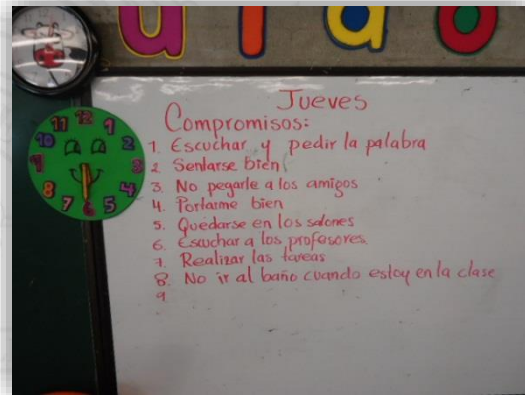 u i a o
Jueves
Compromisos:
1. Escuchar y pedir la palabra
2 Sentarse bien
3. No pegarle a los amigos
4. Portarme bien
5. Quedarse en los salones
6. Escuchar a los profesores
7. Realizar las tareas
8. No ir al baño cuando estoy en la clase
9
12
11 1
10 2
9 3
8 4
7 6 5